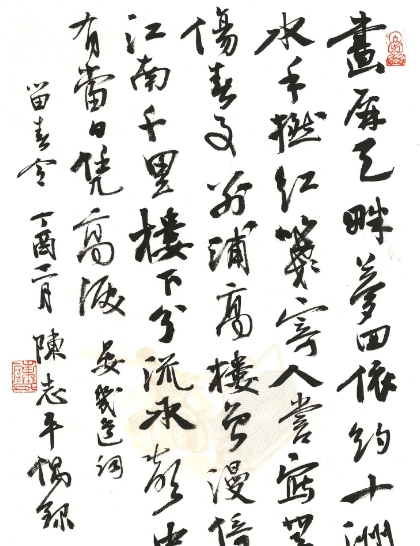 畫屏天畔夢回依約十洲
水手撚紅箋寄人書寫無
傷春事别浦高樓曾漫倚
江南千里樓下分流水聲中
有當日凭高淚 晏幾道詞
留春令 丁酉二月 陳志平偶錄